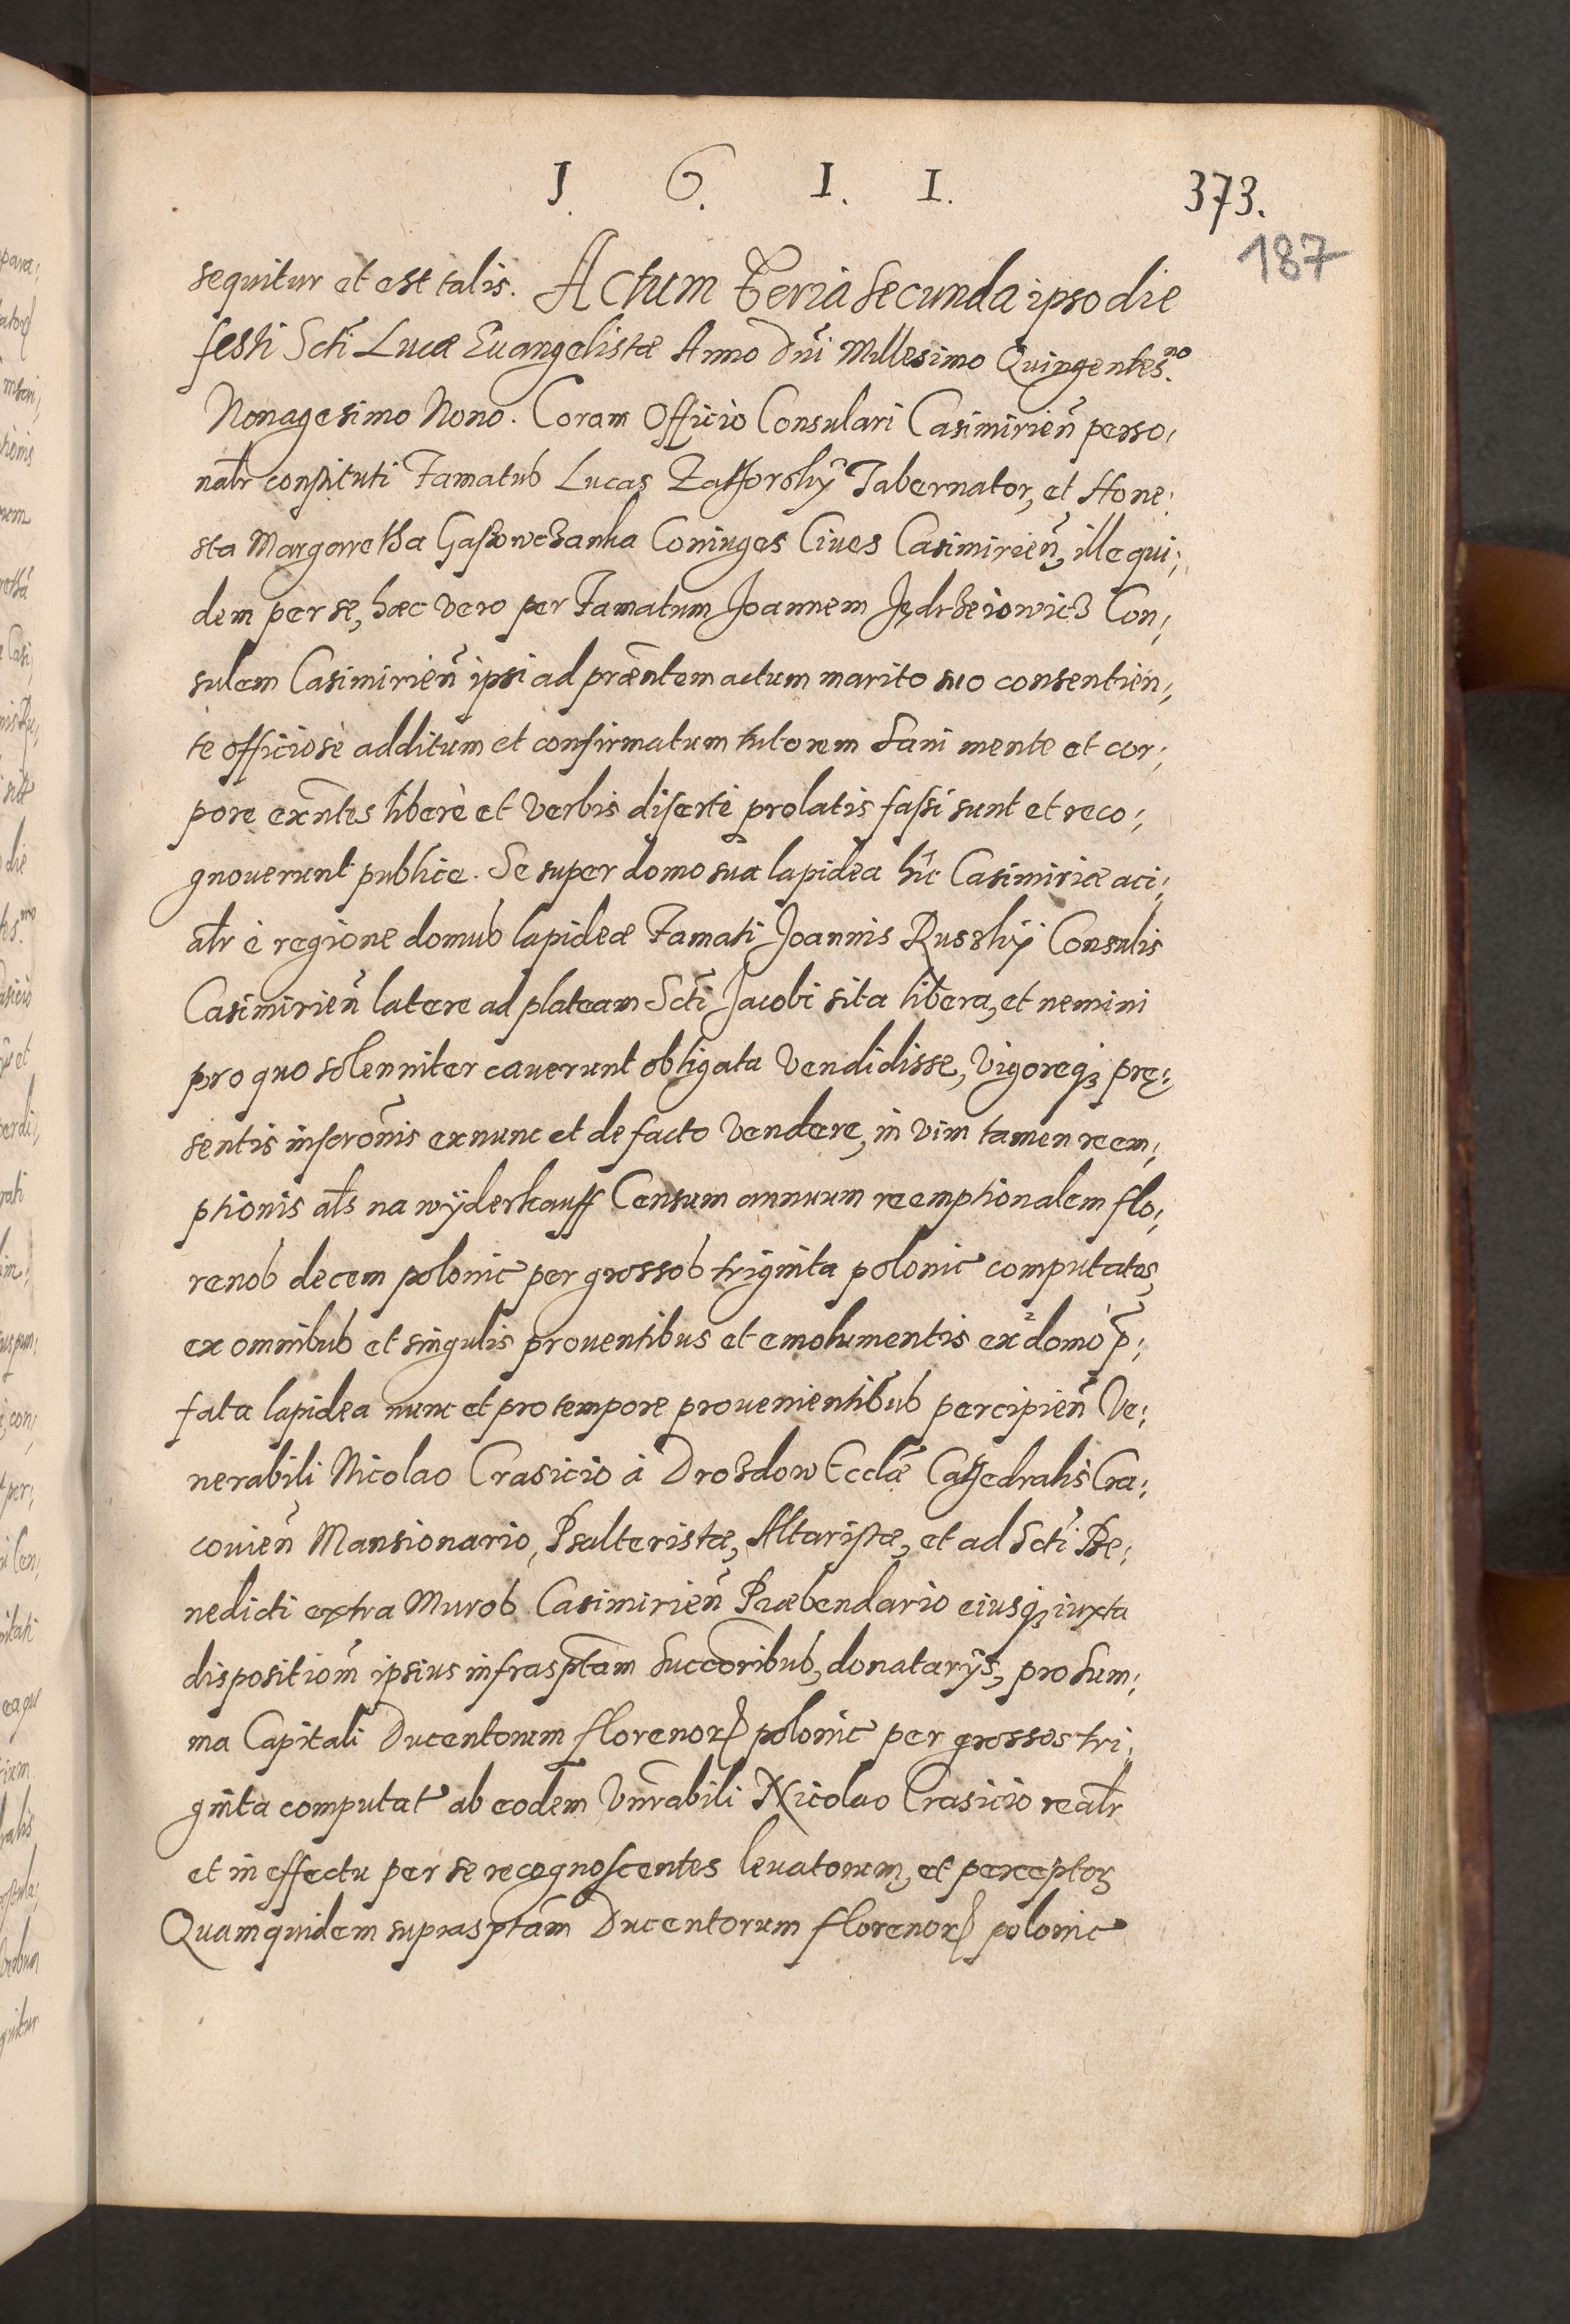 J. 6. I. I. 373.
187
sequitur et est talis. Actum Feria Secunda ipso die
festi Scti Lucæ Euangelistæ Anno Dni Millesimo Quingentes.mo
Nonagesimo Nono. Coram Officio Consulari Casimirien̄ perso;
nalr̄ constituti Famatus Lucas Zathorskÿ Tabernator, et Hone;
sta Margaretha Coniuges Ciues Casimirien̄, ille qui;
dem per se, hæc vero per Famatum Joannem Jędrzeiowicz Con;
sulem Casimirien̄ ipsi ad præn̄tem actum marito suo consentien;
te officiosè additum et confirmatum tutorem Sani mente et cor;
pore exn̄tes liberè et verbis disertè prolatis fassi sunt et reco;
gnouerunt publice. Se super domo sua lapidea hîc Casimiriæ aci;
alr̄ è regione domus lapideæ Famati Joannis Ruszkÿ Consulis
Casimirien̄ latere ad plateam Scti Jacobi sita libera, et nemini
pro quo solenniter cauerunt obligata vendidisse, vigoreq; prę;
sentis inscrōnis exnunc et de facto vendere, in vim tamen reem;
ptionis als na wÿderkauff Censum annuum reemptionalem flo;
renos decem polonic per grossos triginta polonic computatos,
ex omnibus et singulis prouentibus et emolumentis ex domo p̄;
fata lapidea nunc et pro tempore prouenientibus percipien̄ Ve;
nerabili Nicolao Crasicio à Drozdow Ecclæ Cathedralis Cra;
couien̄ Mansionario, Psalteristæ, Altaristæ, et ad Scti Be;
nedicti extra Muros Casimirien̄ Præbendario eiusq; iuxta
disposition̄m ipsius infrasptam Succoribus, donatarÿs, pro Sum;
ma Capitali Ducentorum florenor. polonic per grossos tri;
ginta computat ab eodem Vnrabili Nicolao Crasicio realr̄
et in effectu per se recognoscentes leuatorum, et perceptor.
Quamquidem suprasptam Ducentorum florenor. polonic